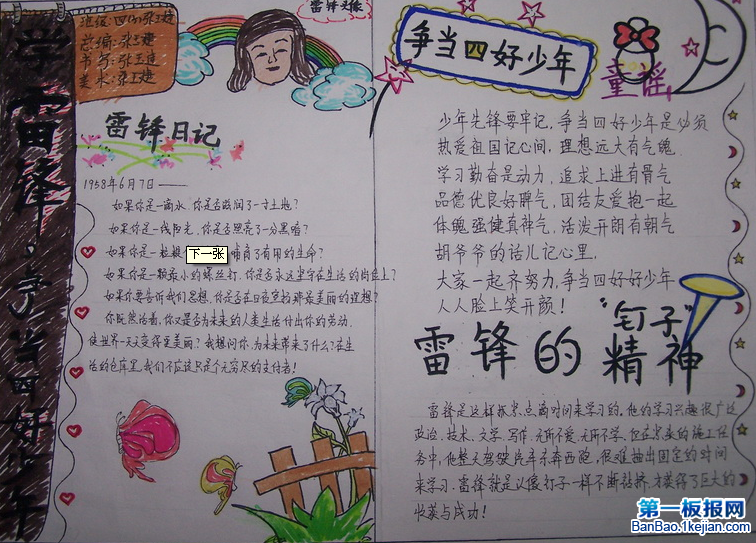 学雷锋,争当四好少年
班级:四(1)张子建
总编:张子建
书写:张子建
美术:张子建
雷锋头像
雷锋日记
1958年6月7日——
如果你是一滴水,你是否滋润了一寸土地?
如果你是一线阳光,你是否照亮了一分黑暗?
如果你是一粒粮
下一张
哺育了有用的生命?
如果你是一颗最小的螺丝钉,你是否永远坚守在生活的岗位上?
如果你要告诉我们思想,你是否在日夜宣扬那最美丽的理想?
你既然活着,你又是否为未来的人类生活付出你的劳动,
使世界一天天变得更美丽?我想问你,为未来带来了什么?在生
活的仓库里,我们不应该只是个无穷尽的支付者!
争当四好少年
童谣
少年先锋要牢记,争当四好少年是必须
热爱祖国记心间,理想远大有气魄.
学习勤奋是动力,追求上进有骨气
品德优良好脾气,团结友爱抱一起
体魄强健真神气,活泼开朗有朝气
胡爷爷的话儿记心里.
大家一起齐努力,争当四好好少年
人人脸上笑开颜!
雷锋的“钉子”精神
雷锋是这样挤点滴时间来学习的,他的学习兴趣很广泛
政治、技术、文学、写作,无所不爱,无所不学.但在紧张的施工任
务中,他整天驾驶汽车东奔西跑,很难抽出固定的时间
来学习.雷锋就是以像钉子一样不断钻挤,才获得了巨大的
收获与成功!
第一板报网
BanBao.1kejian.com